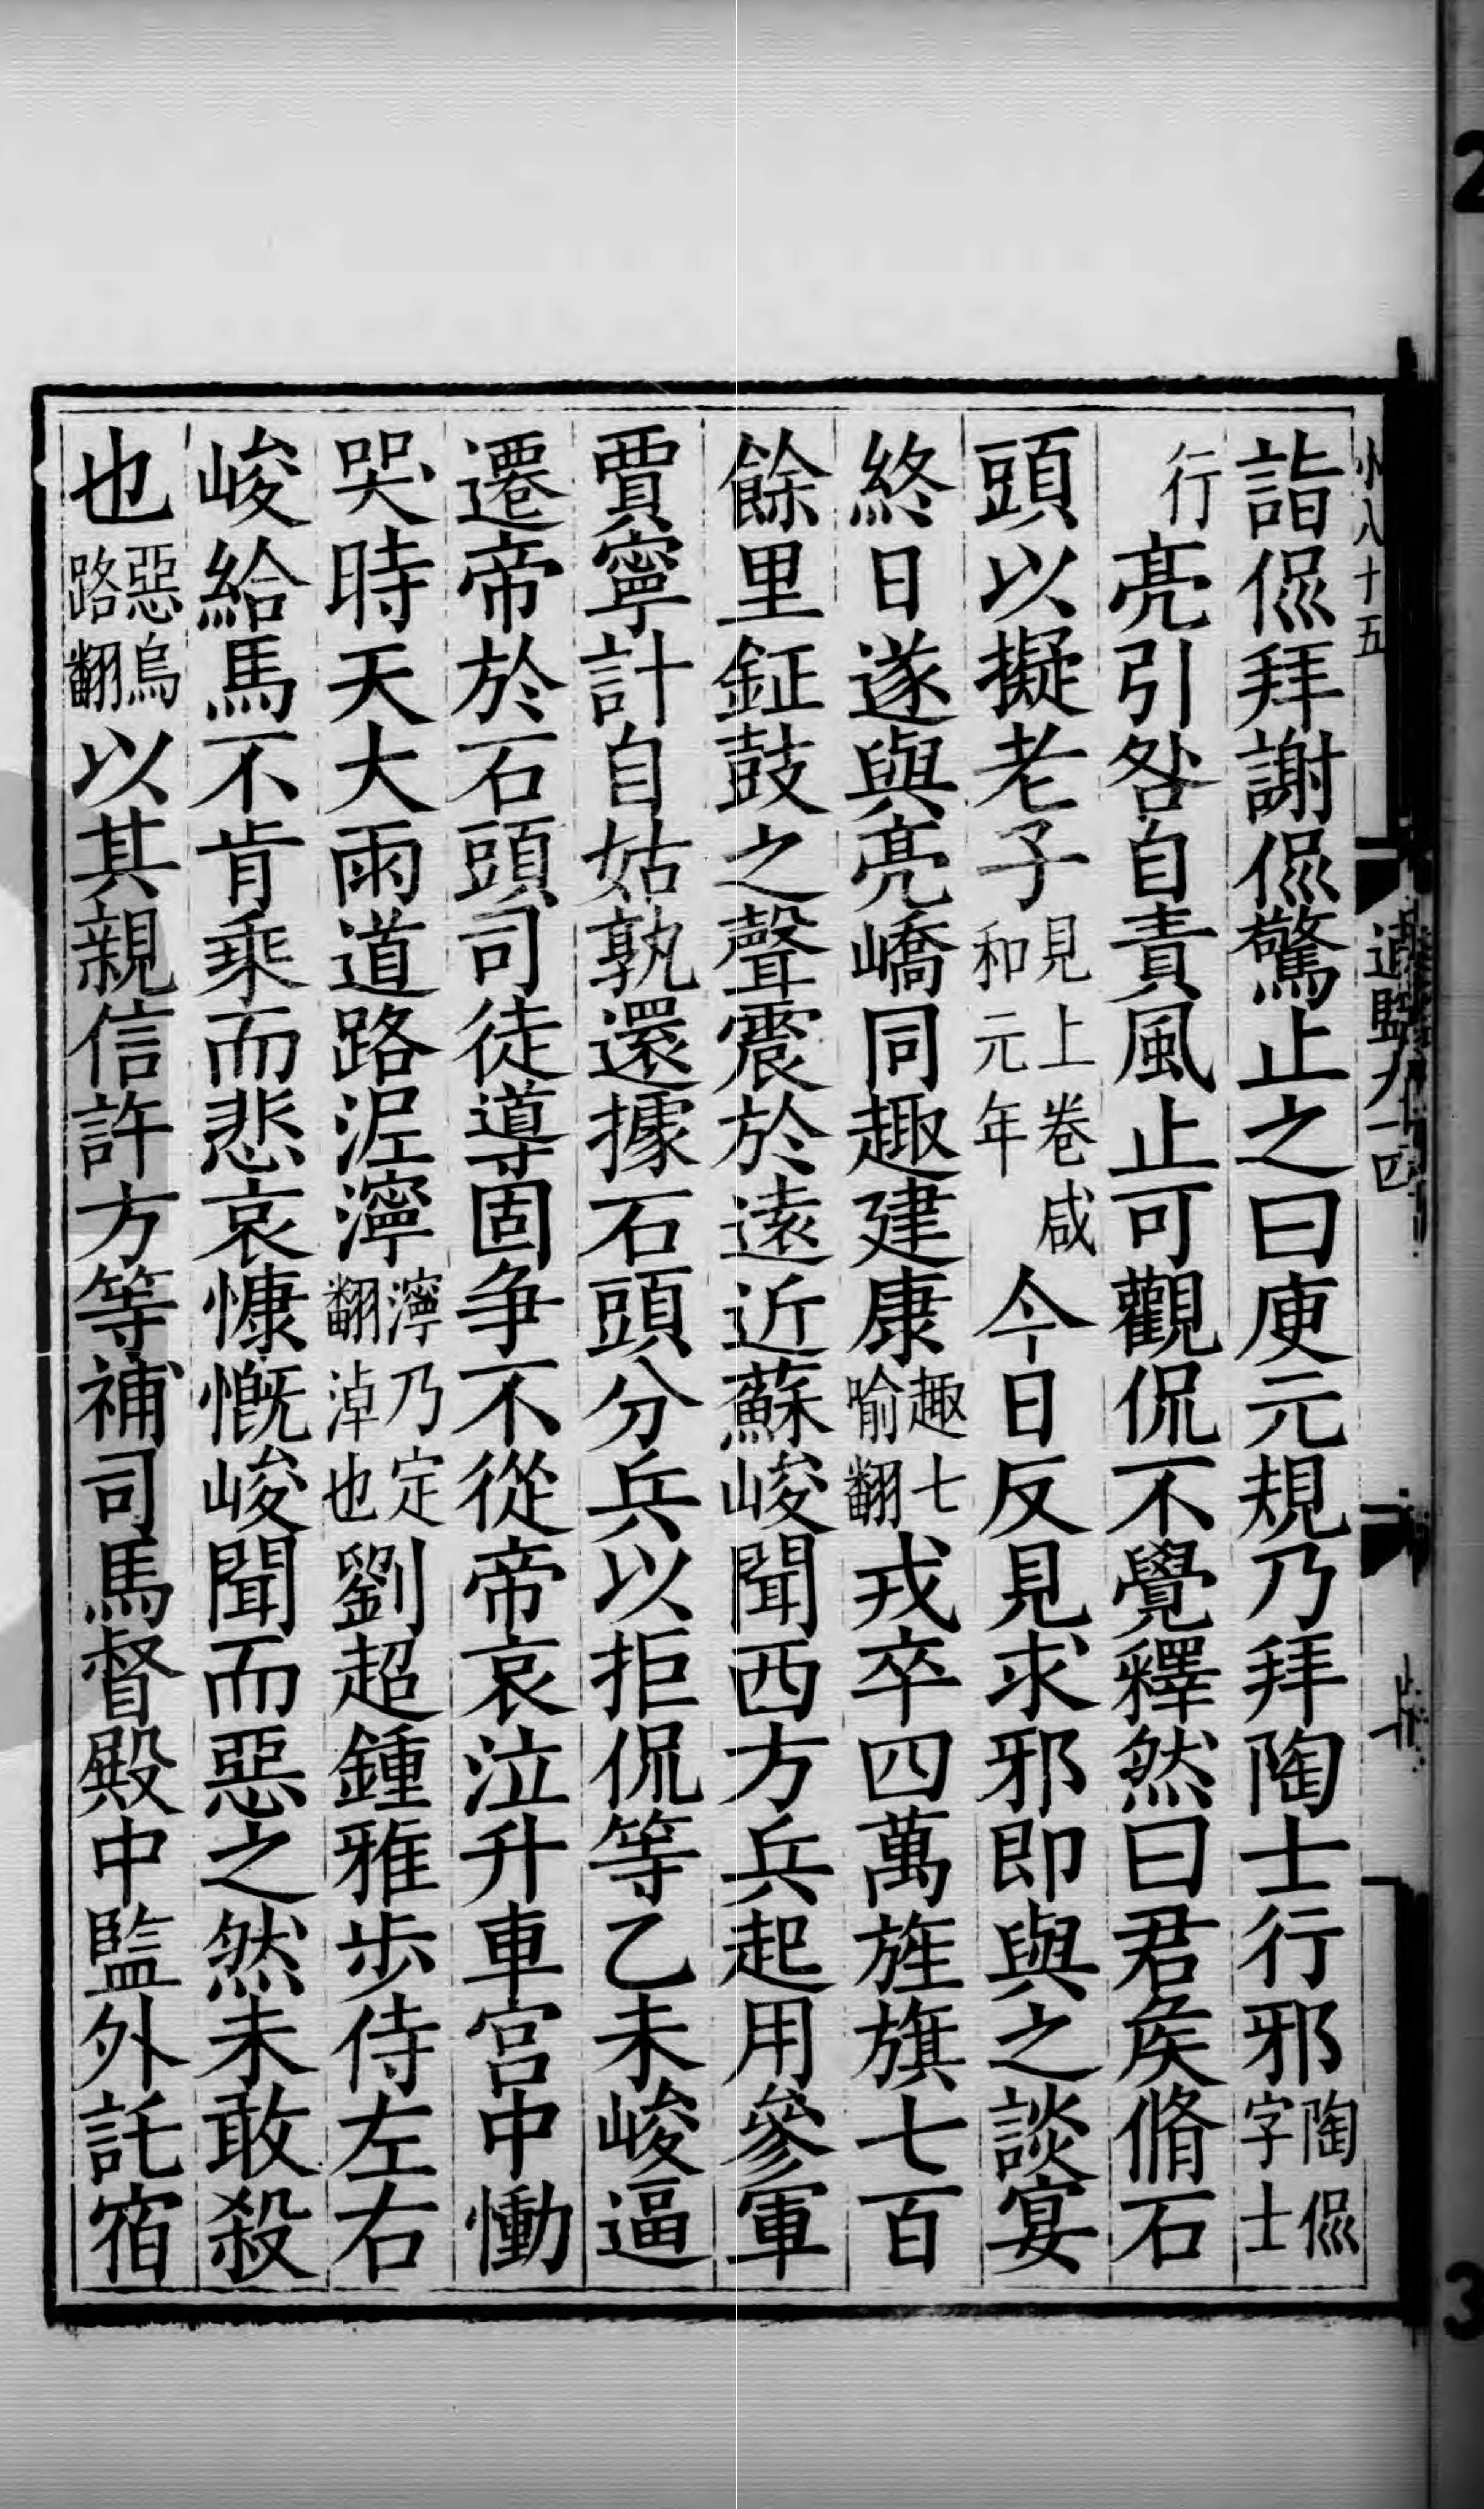 詣侃拜謝侃驚止之曰庾元規乃拜陶士行邪陶侃字士
行亮引咎自責風止可觀侃不覺釋然曰君矦脩石
頭以擬老子見上卷咸和元年今日反見求邪即與之談宴
終日遂與亮嶠同趣建康趣七喻翻戎卒四萬旌旗七百
餘里鉦鼓之聲震於遠近蘇峻聞西方兵起用參軍
賈寧計自姑孰還據石頭分兵以拒侃等乙未峻逼
遷帝於石頭司徒導固争不從帝哀泣升車宫中慟
哭時天大雨道路泥濘濘乃定翻淖也劉超鍾雅步侍左右
峻給馬不肯乘而悲哀慷慨峻聞而惡之然未敢殺
也惡烏路翻以其親信許方等補司馬督殿中監外託宿
小八十五
通監九十四